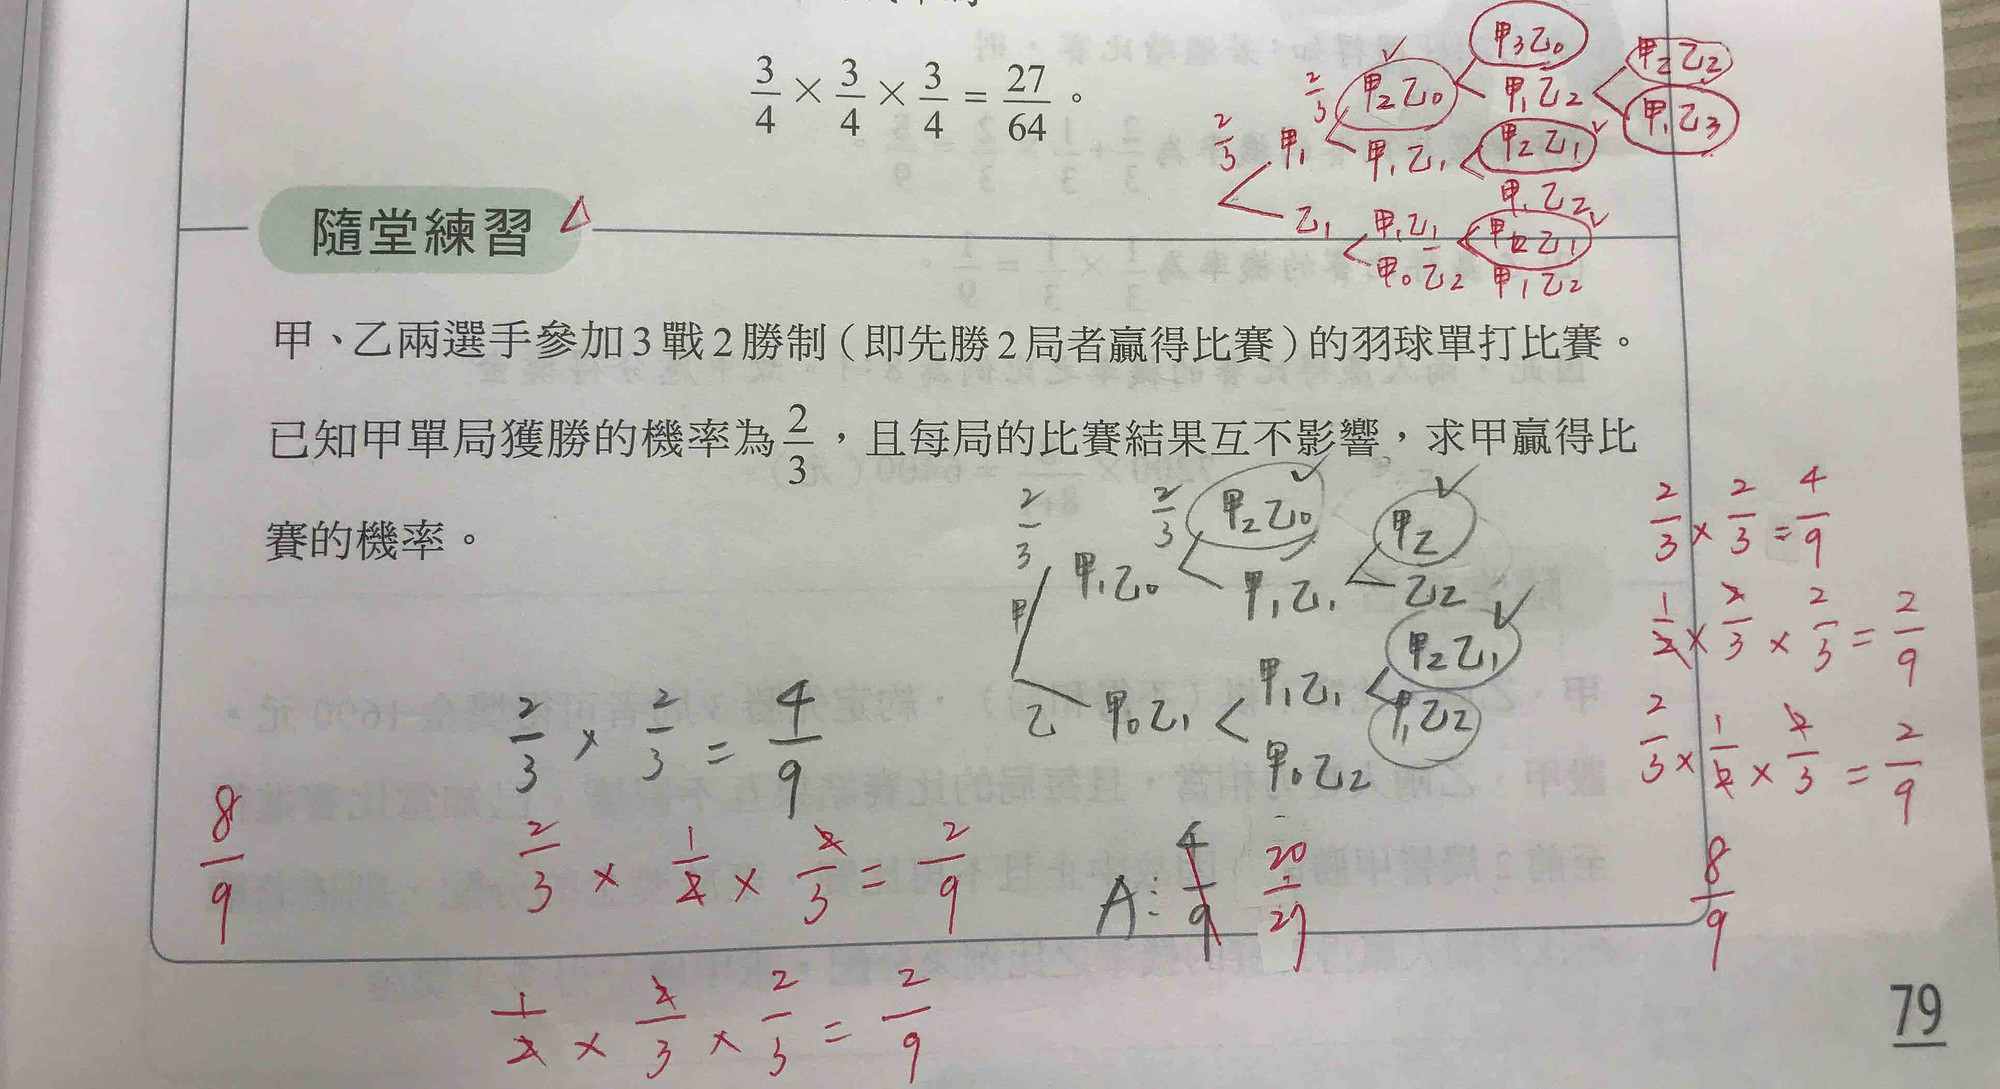 3/4 × 3/4 × 3/4 = 27/64 。
2/3 2/3 甲1 甲2乙0 甲3乙0
甲1乙2 甲2乙2
甲1乙3
甲1乙1 甲2乙1
甲1乙2
乙1 甲1乙1 甲2乙1
甲0乙2 甲1乙2
隨堂練習
甲、乙兩選手參加3戰2勝制(即先勝2局者贏得比賽)的羽球單打比賽。
已知甲單局獲勝的機率為2/3,且每局的比賽結果互不影響,求甲贏得比
賽的機率。
2/3 2/3 甲2乙0 甲2
甲 甲1乙0 甲1乙1 乙2
乙 甲0乙1 甲1乙1 甲2乙1
甲1乙2
甲0乙2
2/3 × 2/3 = 4/9
1/2 × 2/3 × 2/3 = 2/9
2/3 × 1/2 × 2/3 = 2/9
8/9
2/3 × 2/3 = 4/9
8/9
2/3 × 1/2 × 2/3 = 2/9
A: 4/9 20/27
1/2 × 2/3 × 2/3 = 2/9
79